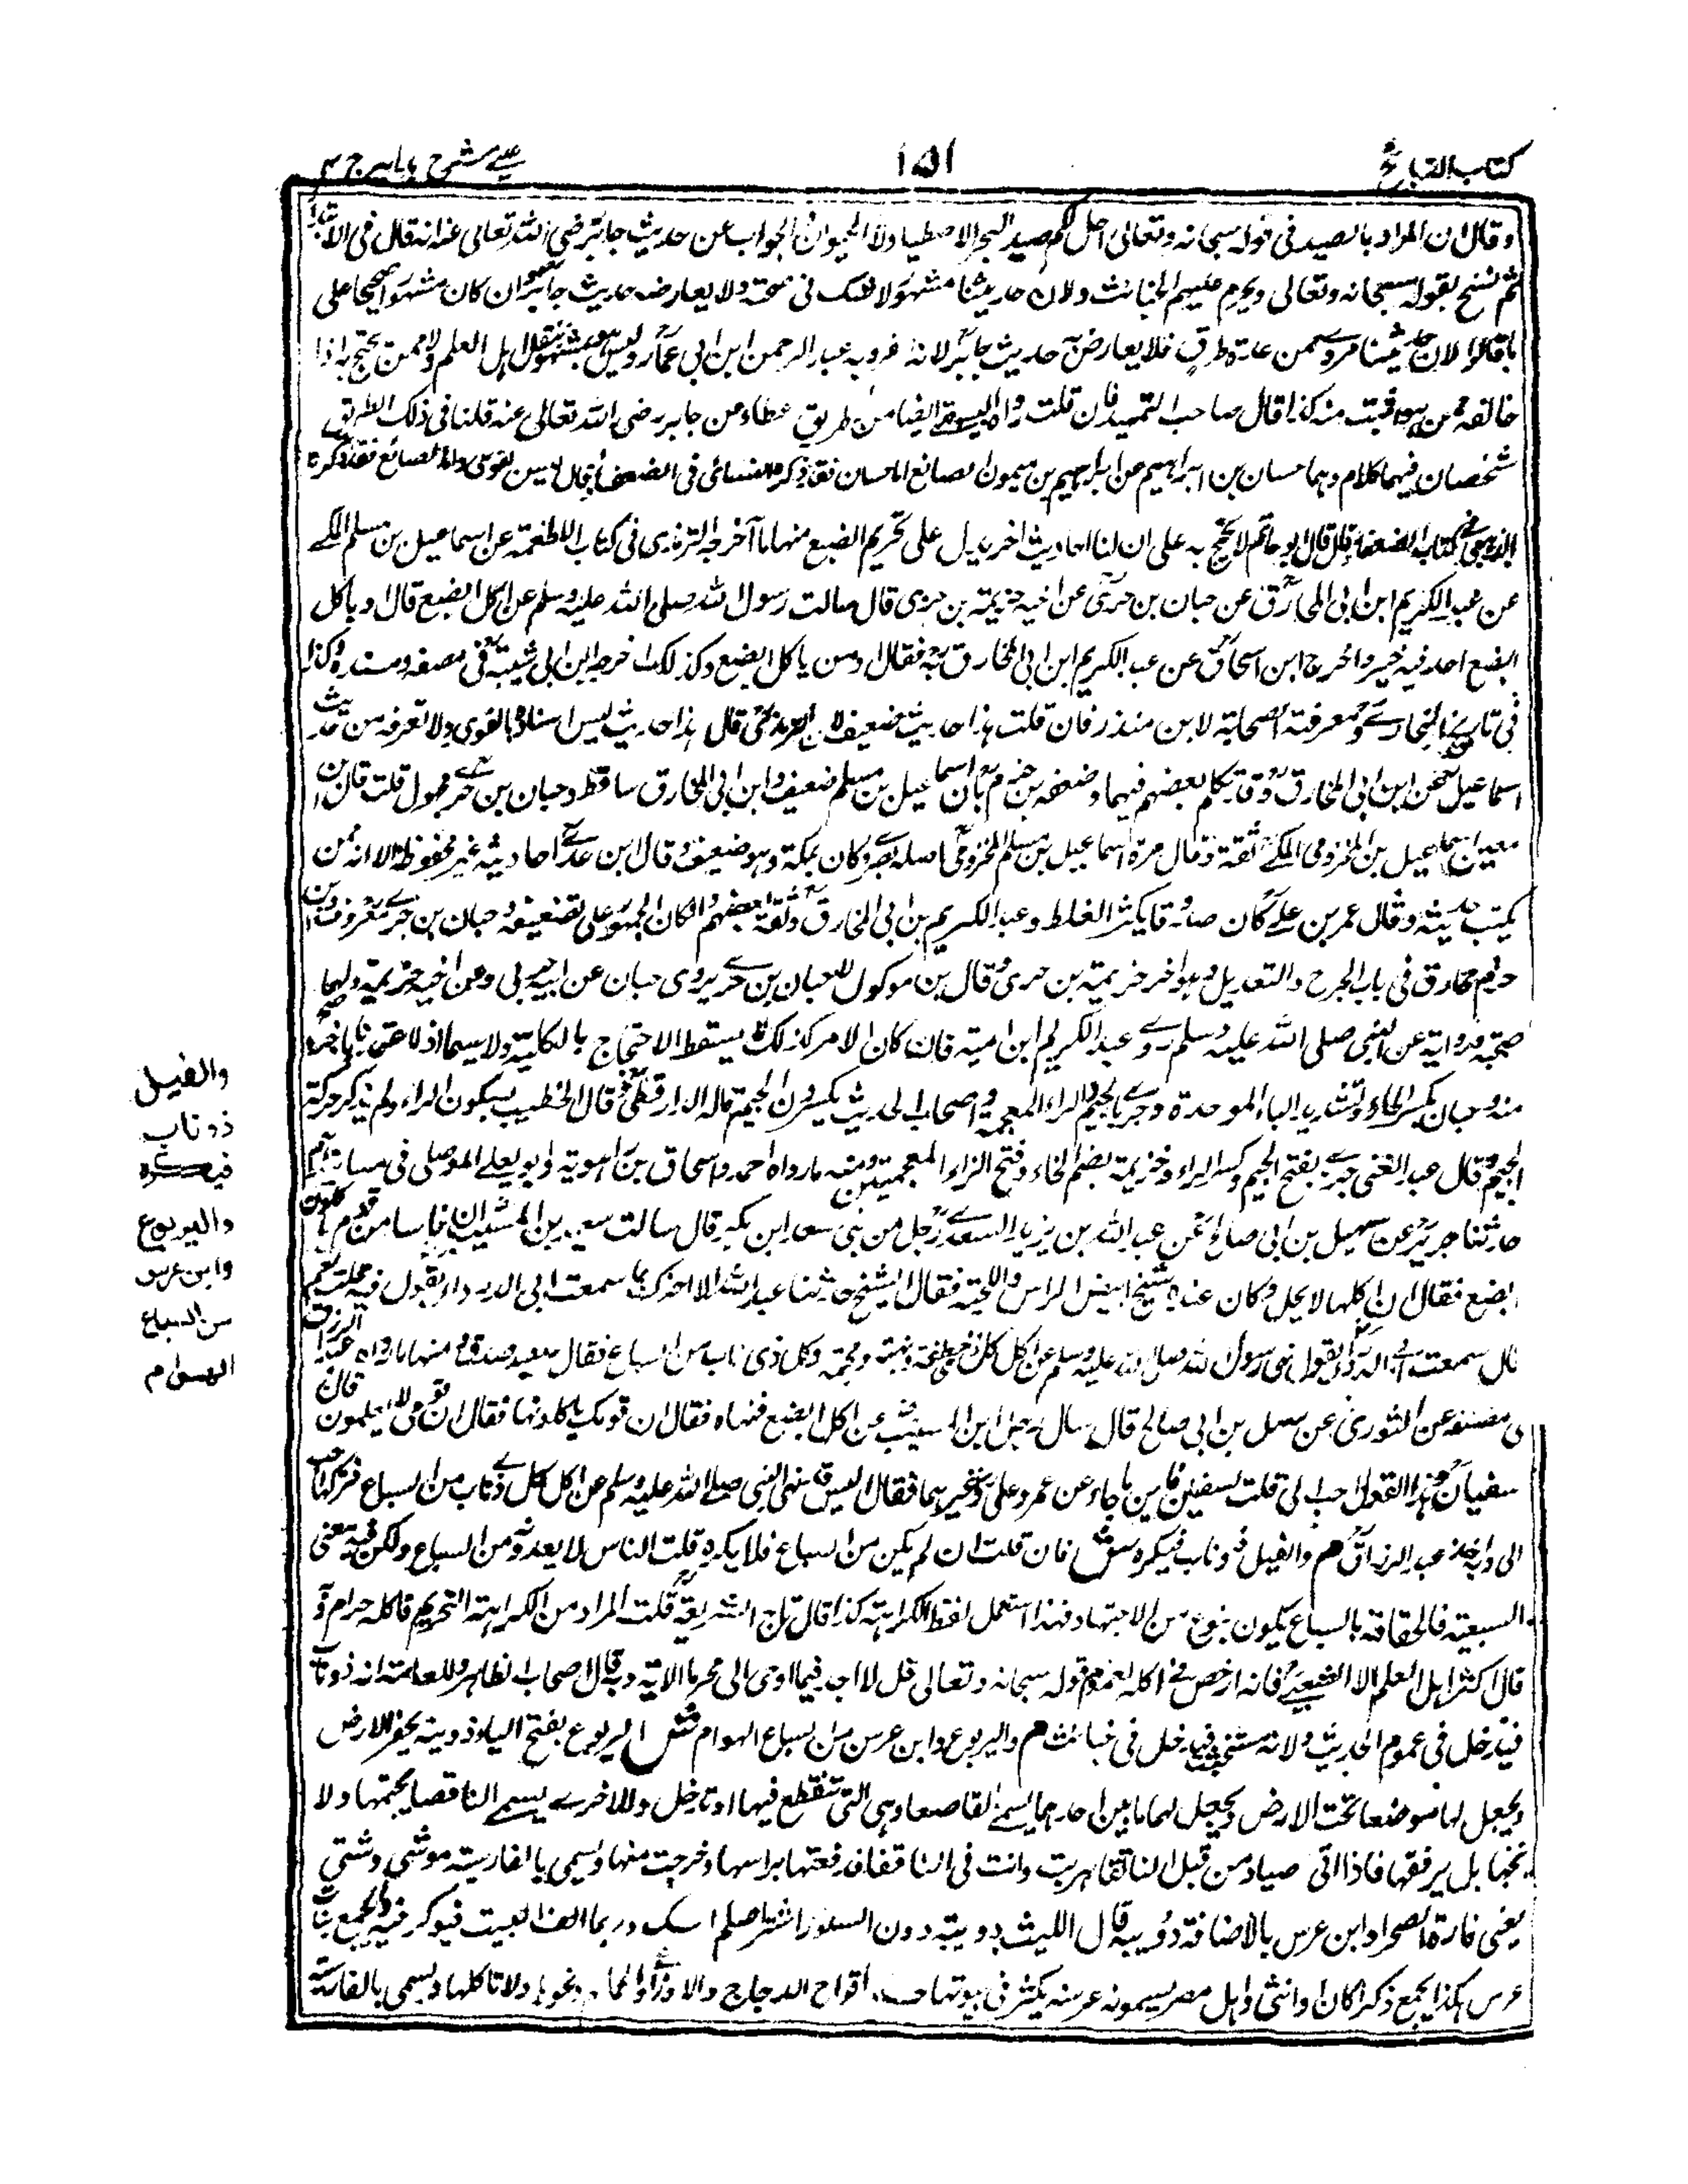 كتاب الذبائح
١٥١
عينى شرح هدايه ج ٤
وقال ان المراد بالصيد فى قوله سبحانه وتعالى احل لكم صيد البحر الاصطياد لا الحيوان والجواب عن حديث جابر رضى الله تعالى عنه انه قال فى الابتداء
ثم نسخ بقوله سبحانه وتعالى ويحرم عليهم الخبائث ولان حديثنا مشهور لا شك فى صحته ولا يعارض حديث جابر وان كان مشهورا صحيحا على
ما قالوا لان حديثنا مروى من عدة طرق فلا يعارضه حديث جابر لانه تفرد به عبد الرحمن ابن ابى عمار وليس هو بمشهور بنقل اهل العلم ولا ممن يحتج به اذا
خالفه من هو اثبت منه كذا قال صاحب التمهيد فان قلت رواه البيهقى ايضا من طريق عطاء عن جابر رضى الله تعالى عنه قلنا فى ذلك الطريق
شخصان فيهما كلام وهما حسان بن ابراهيم عن ابراهيم بن ميمون الصائغ اما حسان فقد ذكره النسائى فى الضعفاء قال ليس بقوى واما الصائغ فقد ذكره
الذهبى فى كتاب الضعفاء وقال قال ابو حاتم لا يحتج به على ان لنا احاديث اخر يدل على تحريم الضبع منها ما اخرجه الترمذى فى كتاب الاطعمة عن اسماعيل بن مسلم المكى
عن عبد الكريم ابن ابى المخارق عن حبان بن جزى عن اخيه خزيمة بن جزى قال سالت رسول الله صلى الله عليه وسلم عن اكل الضبع قال او ياكل
الضبع احد فيه خير واخرج ابن اسحاق عن عبد الكريم ابن ابى المخارق به فقال ومن ياكل الضبع وكذلك اخرجه ابن ابى شيبة فى مصنفه ومسنده وكذا
فى تاريخ البخارى ومعرفة الصحابة لابن منذر فان قلت هذا حديث ضعيف لان الترمذى قال هذا حديث ليس اسناده بالقوى ولا نعرفه من حديث
اسماعيل عن ابن ابى المخارق وقد تكلم بعضهم فيهما وضعفه ابن حزم بان اسماعيل بن مسلم ضعيف وابن ابى المخارق ساقط وحبان بن جزى مجهول قلت قال ابن
معين اسماعيل بن المخزومى المكى ثقة وقال مرة اسماعيل بن مسلم المخزومى اصله بصرى وكان بمكة وهو ضعيف وقال ابن عدى احاديثه غير محفوظة الا انه ممن
يكتب حديثه وقال عمر بن على كان صدوقا يكثر الغلط وعبد الكريم بن ابى المخارق وثقه بعضهم وان كان الجمهور على تضعيفه وحبان بن جزى معروف
فى باب الجرح والتعديل وهو اخو خزيمة بن جزى وقال بن موكول حبان بن جزى يروى حبان عن ابيه وعن اخيه خزيمة ولهما
صحبة ورواية عن النبى صلى الله عليه وسلم روى عبد الكريم ابن امية فان كان الامر كذلك يسقط الاحتجاج بالكلية ولا سيما اذ لا
وحبان بكسر الحاء وتشديد الباء الموحدة وجزى بالجيم والزاء المعجمة واصحاب الحديث يكسرون الجيم قاله الدارقطنى وقال الخطيب بسكون الزاء ولم يذكر حركة
الجيم وقال عبد الغنى جزى بفتح الجيم وكسر الزاء وخزيمة بضم الخاء وفتح الزاء المعجمتين ومنه ما رواه احمد واسحاق بن راهويه وابو يعلى الموصلى فى مسانيدهم
حدثنا جرير عن سهيل بن ابى صالح عن عبد الله بن يزيد السعدى رجل من بنى سعد ابن بكر قال سالت سعيد بن المسيب ان ناسا من قومى ياكلون
الضبع فقال ان اكلها لا يحل وكان عنده شيخ ابيض الراس واللحية فقال الشيخ حدثنا عبد الله الا اخبرك بما سمعت ابى الدرداء يقول فيه قلت نعم
قال سمعت ابى الدرداء يقول نهى رسول الله صلى الله عليه وسلم عن اكل كل ذى خطفة ونهبة ومجثمة وكل ذى ناب من السباع فقال سعيد صدق ومنها ما رواه عبد الرزاق
فى مصنفه عن الثورى عن سهل بن ابى صالح قال سال رجل ابن المسيب عن اكل الضبع فنهاه فقال ان قومك ياكلونها فقال ان قومى لا يعلمون قال
سفيان وهذا القول احب الى قلت لسفين فاين ما جاء عن عمر وعلى وغيرهما فقال اليس قد نهى النبى صلى الله عليه وسلم عن اكل كل ذى ناب من السباع فتركها احب
الى وبه اخذ عبد الرزاق م والفيل ذو ناب فيكره ش فان قلت ان لم يكن من السباع فلا يكره قلت الناس لا يعدونه من السباع ولكن فيه معنى
السبعية فالحاقه بالسباع يكون بنوع من الاجتهاد فلهذا استعمل لفظ الكراهة كذا قال تاج الشريعة قلت المراد من الكراهة التحريم فاكله حرام و
قال اكثر اهل العلم الا الشعبى فانه ارخص فى اكله لعموم قوله سبحانه وتعالى قل لا اجد فيما اوحى الى محرما الاية وبه قال اصحاب الظاهر وللعامة انه ذو ناب
فيدخل فى عموم الحديث ولانه مستخبث فيدخل فى خبائث م واليربوع وابن عرس من سباع الهوام ش اليربوع بفتح الياء دويبة يحفر الارض
ويجعل لها موضعا تحت الارض ويجعل لها بابين احدهما يسمى القاصعا وهى التى تقطع فيها او تدخل والاخرى يسمى النافقا يكتمها ولا
بل يرققها فاذا اتى صياد من قبل القاصعا هربت واتت فى النافقا فدفعتها براسها وخرجت منها ويسمى بالفارسية موشى دشتى
يعنى فارة الصحرا وابن عرس بالاضافة دويبة قال الليث دويبة دون السنور اشتر اصلم اسك وربما الف البيت فيوكر فيه والجمع بنات
عرس هكذا يجمع ذكرا كان او انثى واهل مصر يسمونه عرسة يكثر فى بيوتها افراخ الدجاج والاوز والحمام ونحوها ولا تاكلها ويسمى بالفارسية
والفيل
ذو ناب
فيكره
واليربوع
وابن عرس
من السباع
الهوام